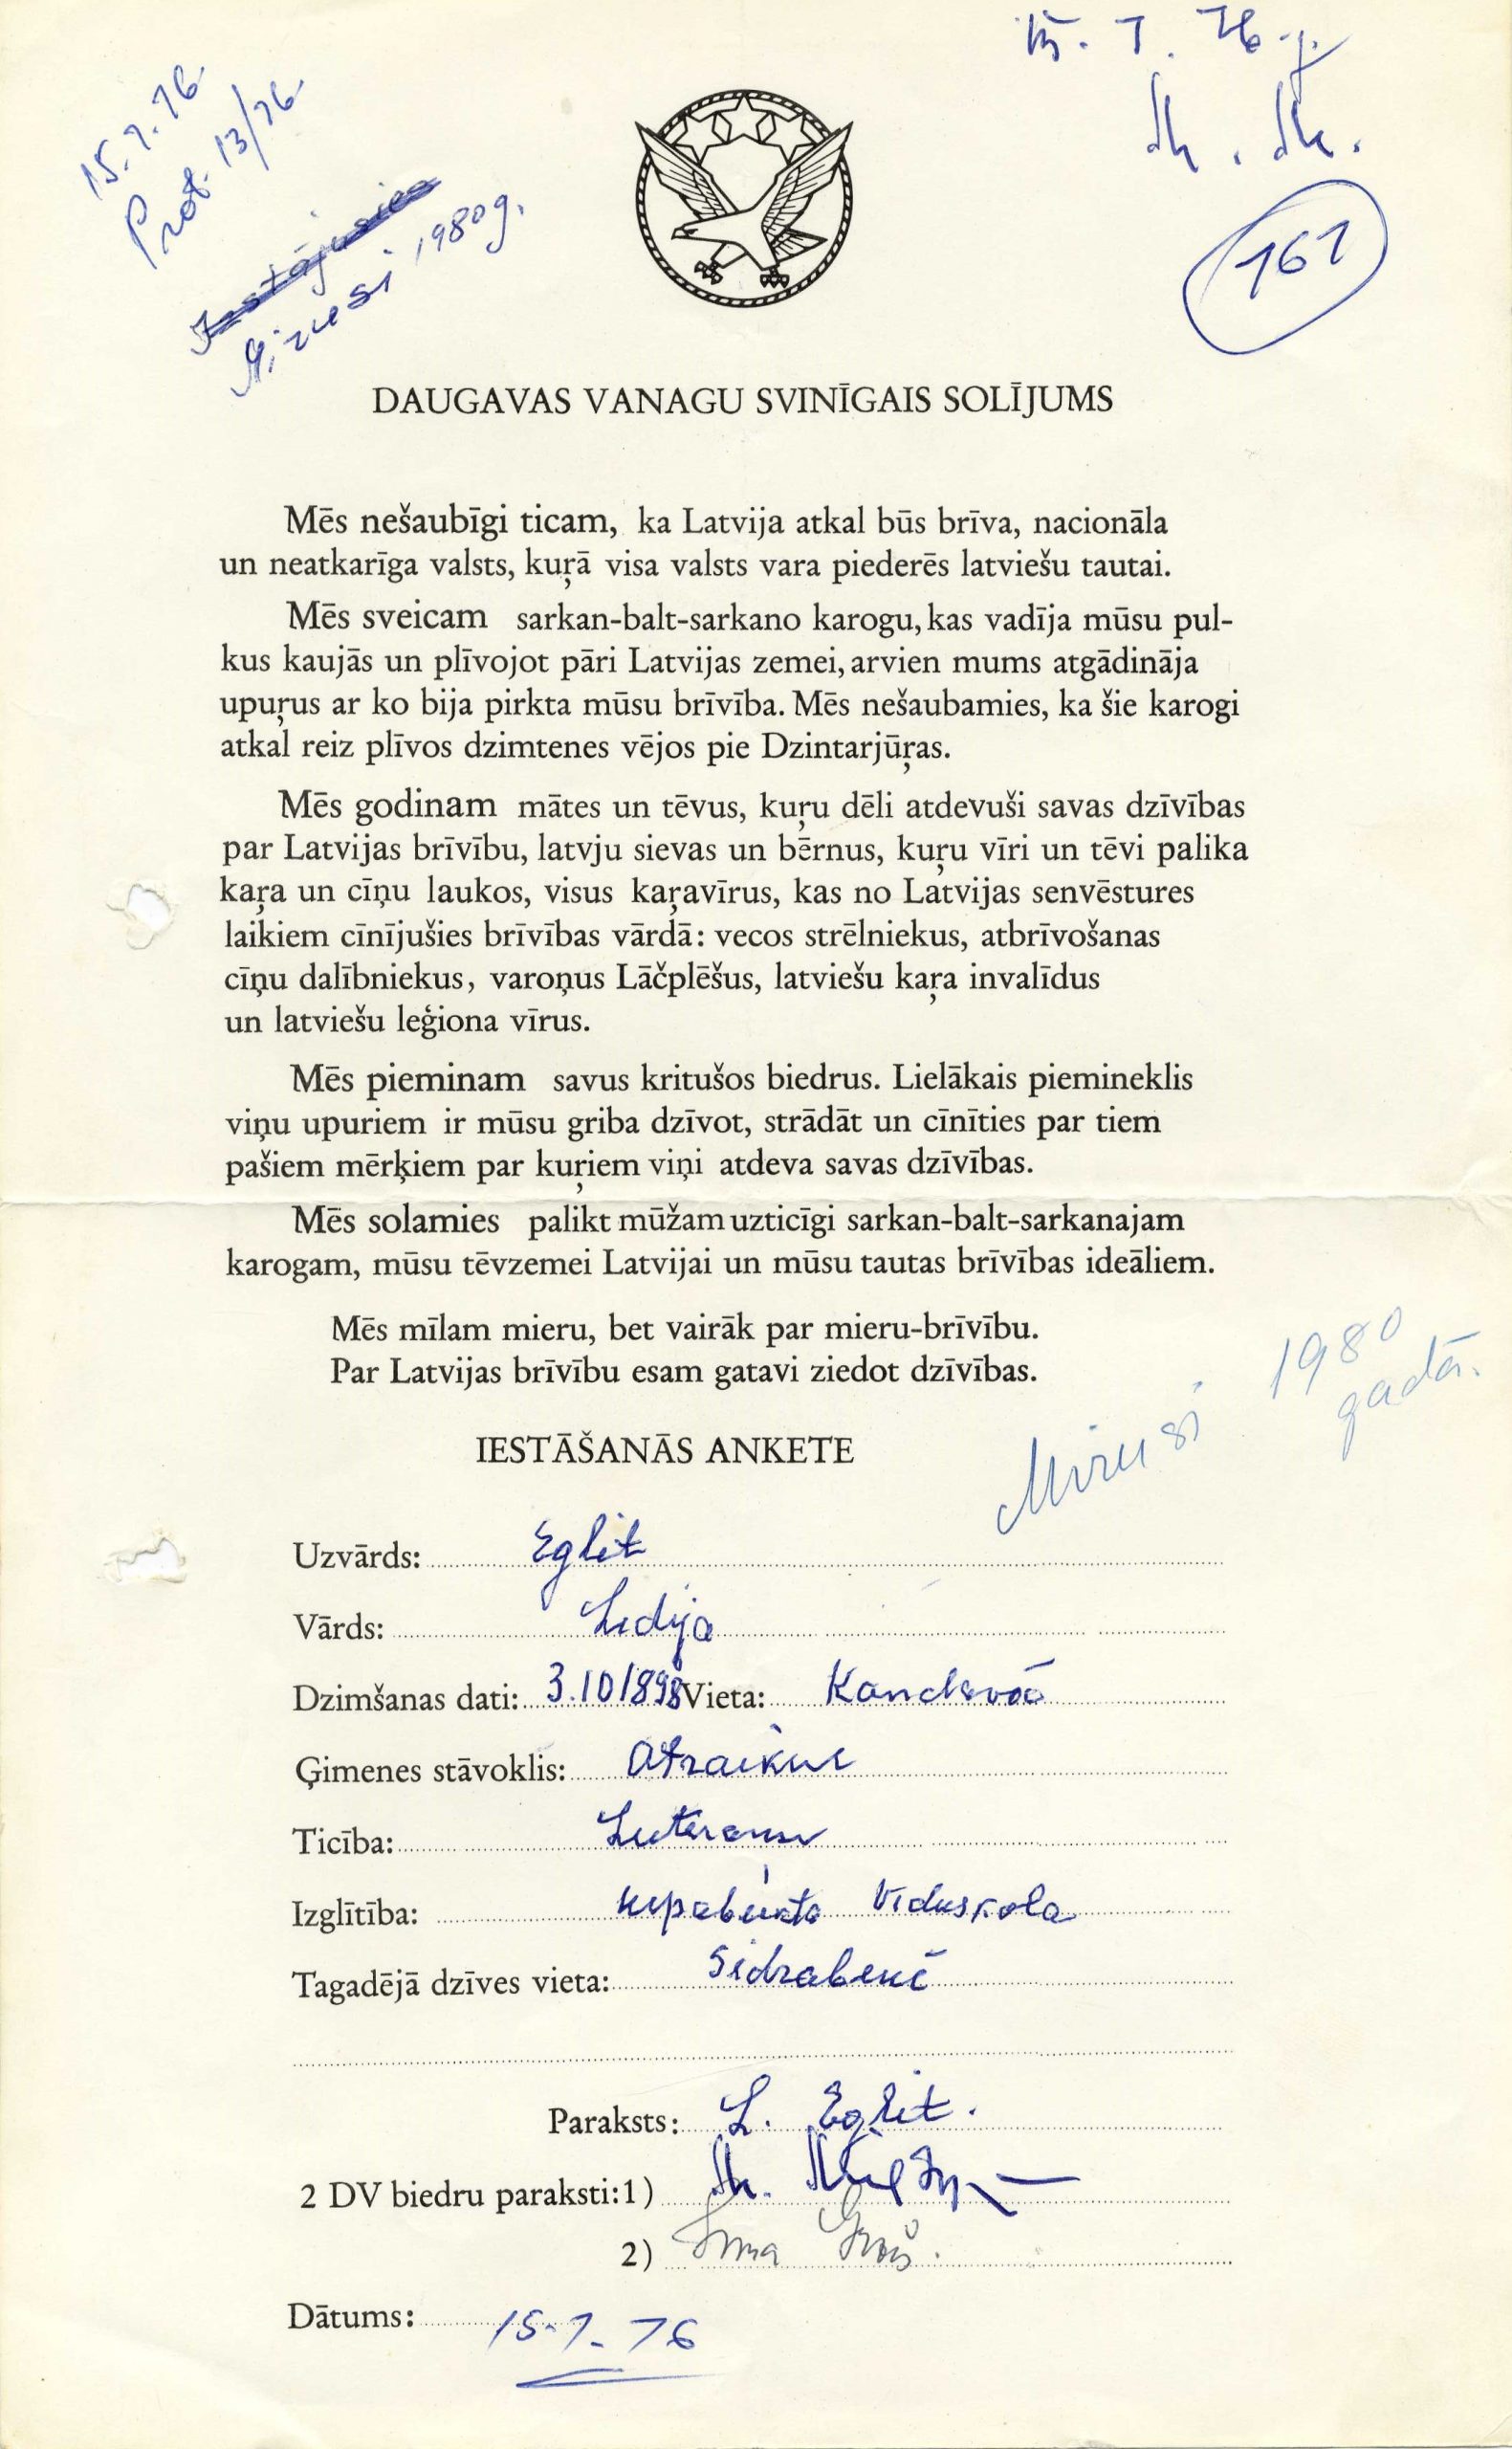 15.7.76.
15.7.76.
Prot. 13/76.
161
Iestājusies
Mirusi 1980 g.
DAUGAVAS VANAGU SVINĪGAIS SOLĪJUMS
Mēs nešaubīgi ticam, ka Latvija atkal būs brīva, nacionāla
un neatkarīga valsts, kuŗā visa valsts vara piederēs latviešu tautai.
Mēs sveicam sarkan-balt-sarkano karogu, kas vadīja mūsu pul-
kus kaujās un plīvojot pāri Latvijas zemei, arvien mums atgādināja
upuŗus ar ko bija pirkta mūsu brīvība. Mēs nešaubamies, ka šie karogi
atkal reiz plīvos dzimtenes vējos pie Dzintarjūŗas.
Mēs godinam mātes un tēvus, kuŗu dēli atdevuši savas dzīvības
par Latvijas brīvību, latvju sievas un bērnus, kuŗu vīri un tēvi palika
kaŗa un cīņu laukos, visus kaŗavīrus, kas no Latvijas senvēstures
laikiem cīnījušies brīvības vārdā: vecos strēlniekus, atbrīvošanas
cīņu dalībniekus, varoņus Lāčplēšus, latviešu kaŗa invalīdus
un latviešu leģiona vīrus.
Mēs pieminam savus kritušos biedrus. Lielākais piemineklis
viņu upuriem ir mūsu griba dzīvot, strādāt un cīnīties par tiem
pašiem mērķiem par kuŗiem viņi atdeva savas dzīvības.
Mēs solamies palikt mūžam uzticīgi sarkan-balt-sarkanajam
karogam, mūsu tēvzemei Latvijai un mūsu tautas brīvības ideāliem.
Mēs mīlam mieru, bet vairāk par mieru-brīvību.
Par Latvijas brīvību esam gatavi ziedot dzīvības.
Mirusi 1980
gadā.
IESTĀŠANĀS ANKETE
Uzvārds: Eglit
Vārds: Lidija
Dzimšanas dati: 3.10/898 Vieta: Kandavā
Ģimenes stāvoklis: Atraikne
Ticība: Luteranu
Izglītība: nepabeikta Viduskola
Tagadējā dzīves vieta: Sidrabenē
Paraksts: L. Eglit.
2 DV biedru paraksti: 1)
2) Irma
Dātums: 15.7.76